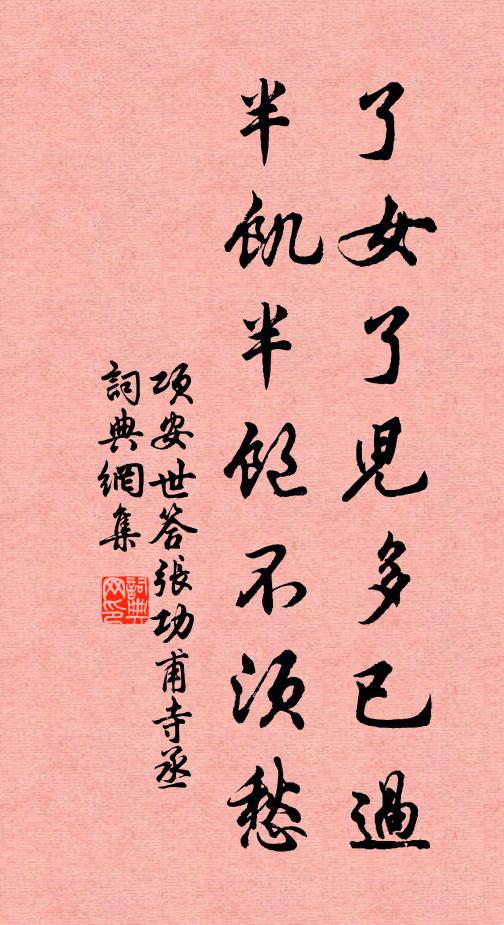 了女了児多已過
半飢半飽不須愁
項安世答張功甫寺丞
詞典網集
詞典網印